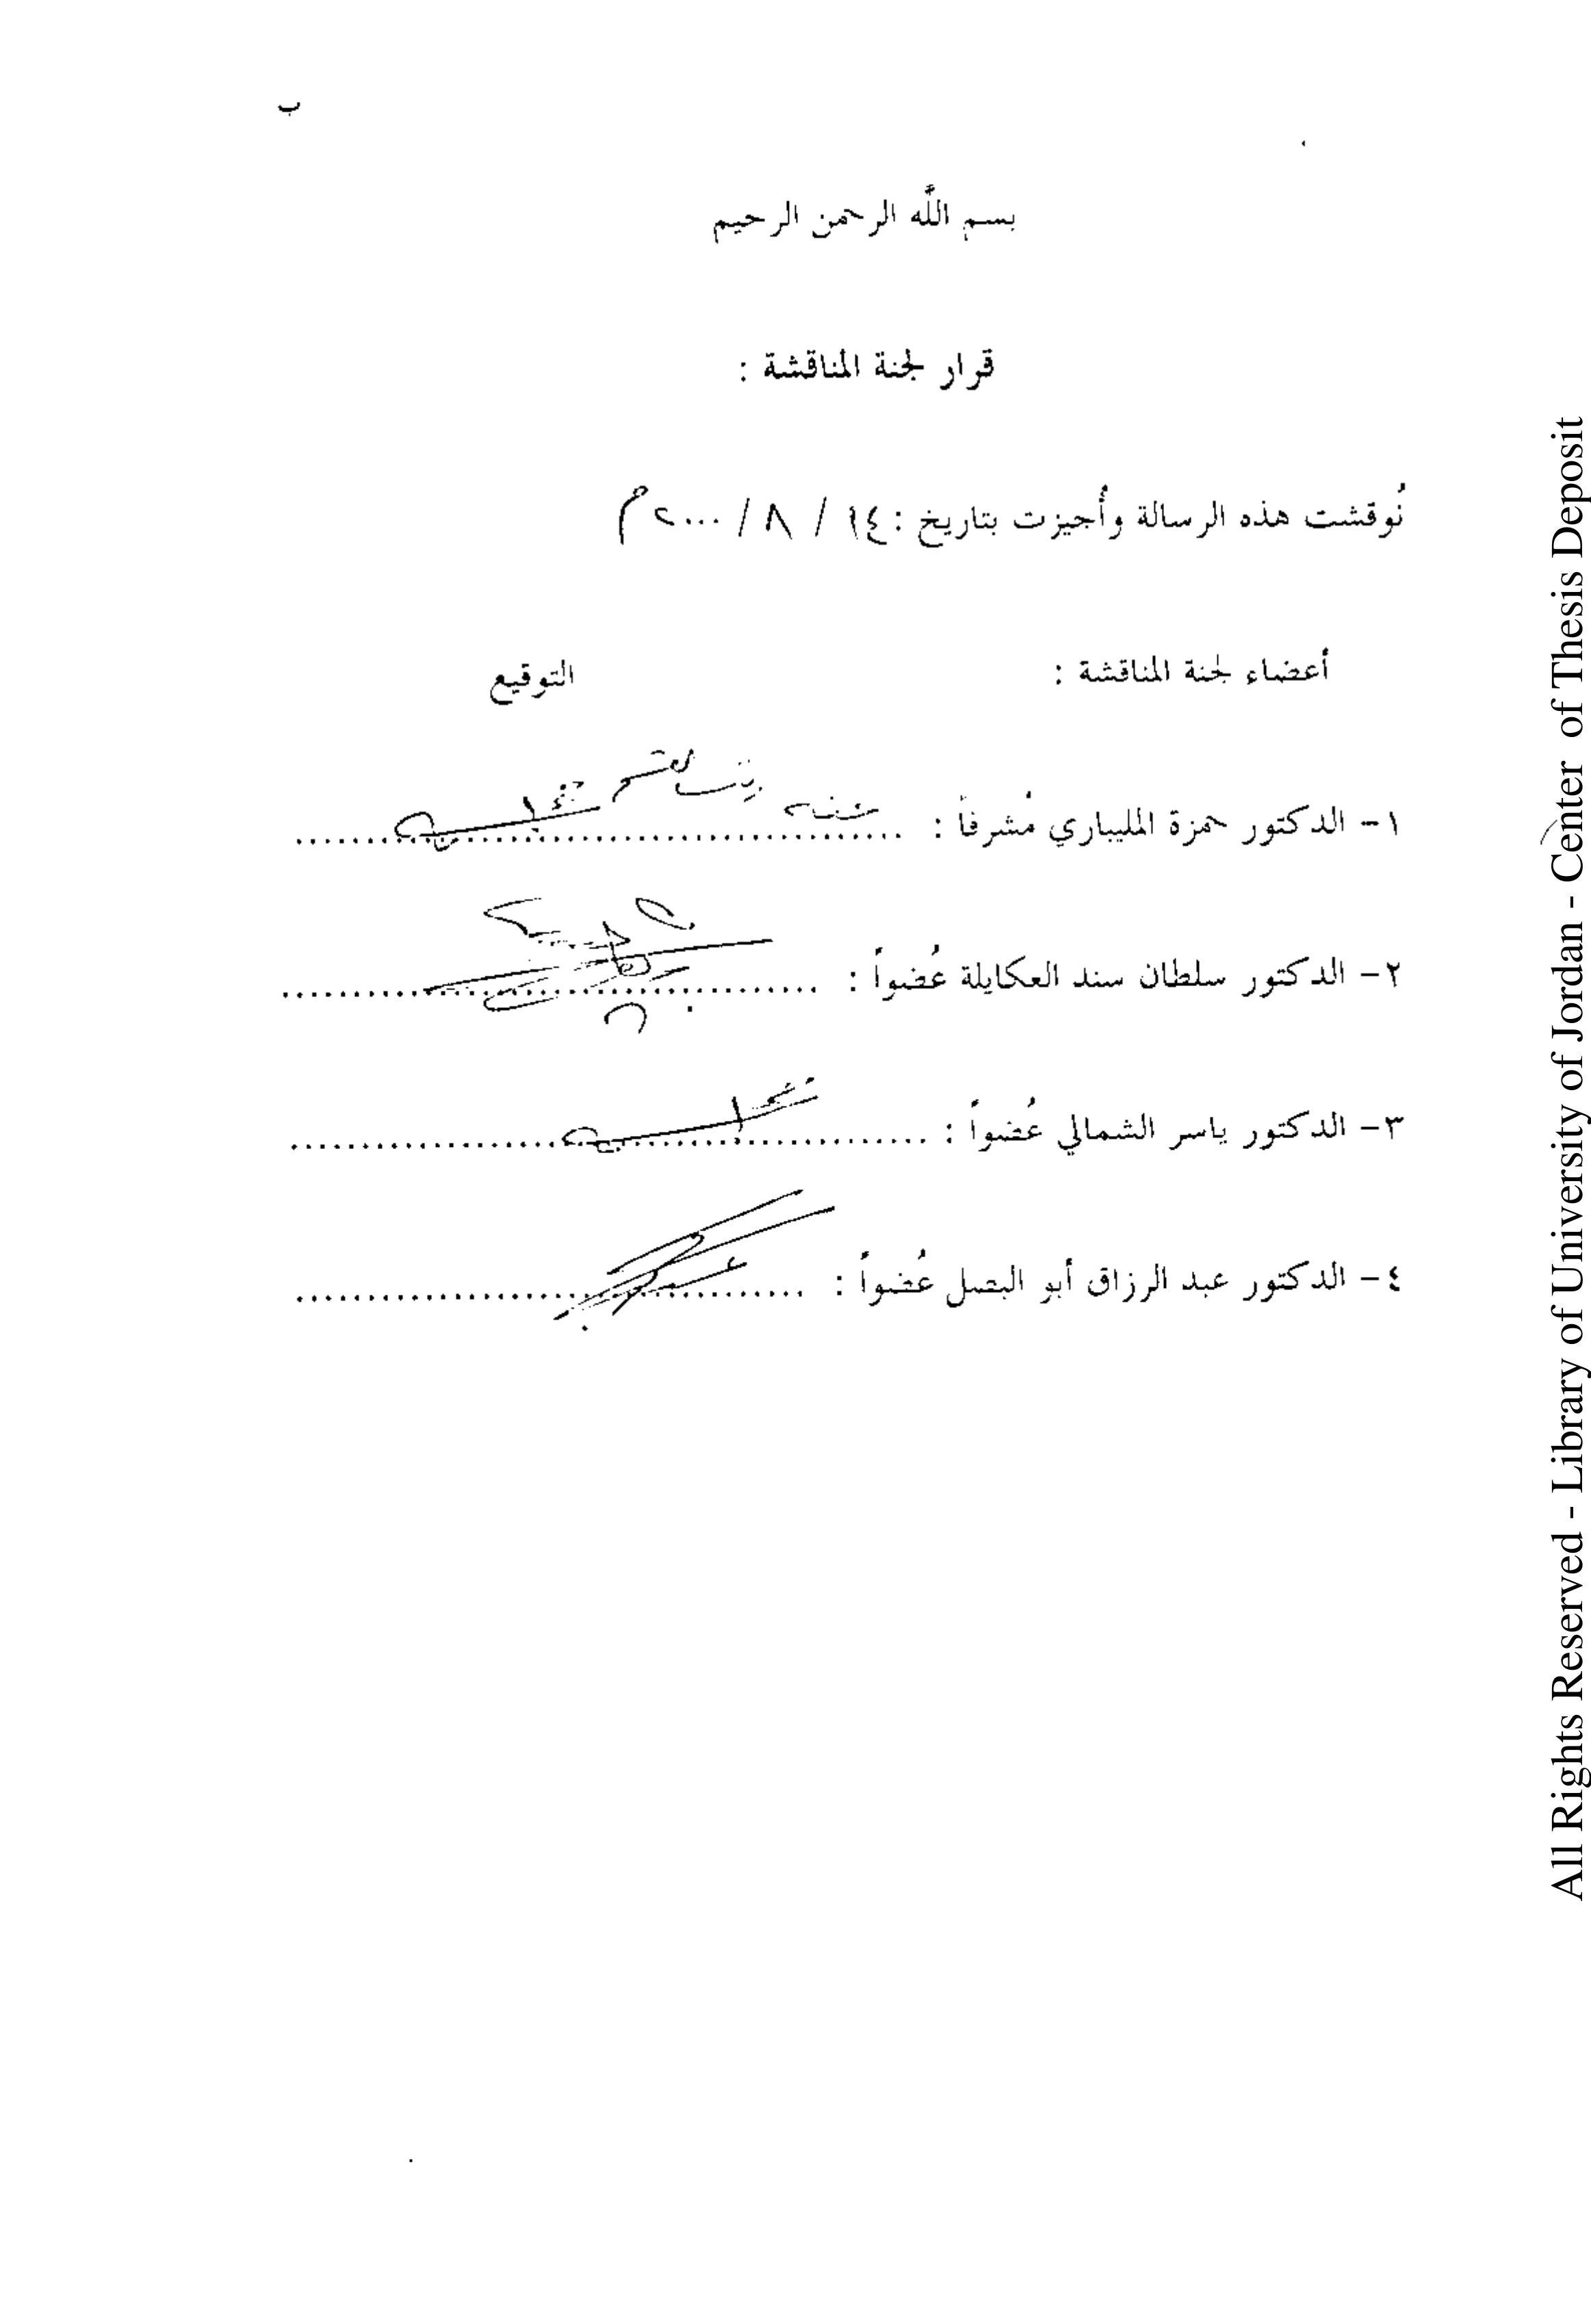 ب
بسم اللّه الرحمن الرحيم
قرار لجنة المناقشة :
نُوقشت هذه الرسالة وأُجيزت بتاريخ : ١٤ / ٨ / ٢٠٠٠ م
أعضاء لجنة المناقشة : التوقيع
١- الدكتور حمزة المليباري مُشرفاً : ........................................
٢- الدكتور سلطان سند العكايلة عُضواً : ........................................
٣- الدكتور ياسر الشمالي عُضواً : ........................................
٤- الدكتور عبد الرزاق أبو البصل عُضواً : ........................................
All Rights Reserved - Library of University of Jordan - Center of Thesis Deposit